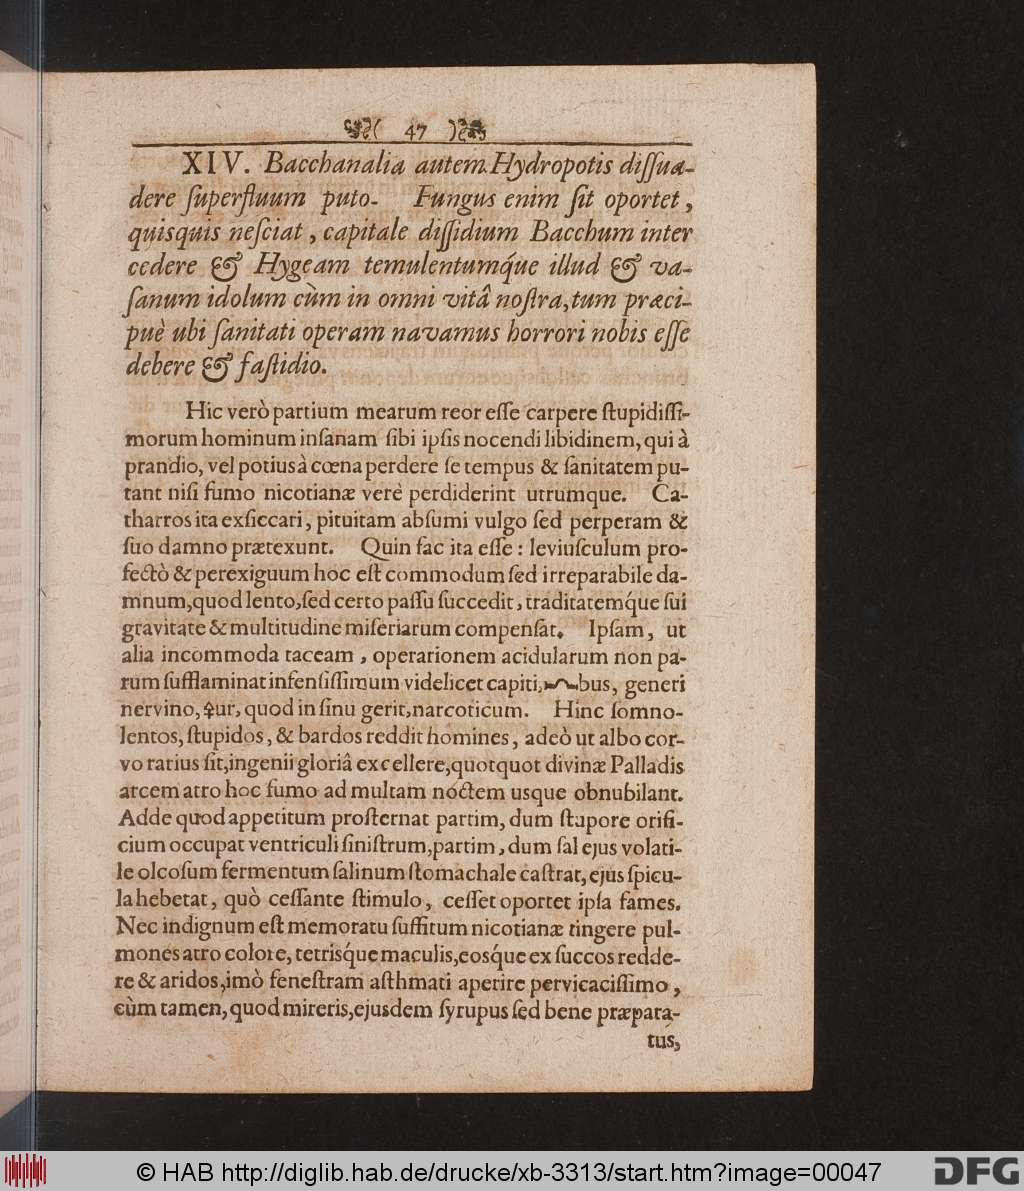 ( 47 )
XIV. Bacchanalia autem Hydropotis diſſua-
dere ſuperfluum puto. Fungus enim ſit oportet,
quisquis neſciat, capitale diſſidium Bacchum inter
cedere & Hygeam temulentumq́ue illud & va-
ſanum idolum cùm in omni vitâ noſtra, tum præci-
puè ubi ſanitati operam navamus horrori nobis eſſe
debere & faſtidio.
Hic verò partium mearum reor eſſe carpere ſtupidiſſi-
morum hominum inſanam ſibi ipſis nocendi libidinem, qui à
prandio, vel potius à cœna perdere ſe tempus & ſanitatem pu-
tant niſi fumo nicotianæ verè perdiderint utrumque. Ca-
tharros ita exſiccari, pituitam abſumi vulgo ſed perperam &
ſuo damno prætexunt. Quin fac ita eſſe: leviuſculum pro-
fectò & perexiguum hoc eſt commodum ſed irreparabile da-
mnum, quod lento, ſed certo paſſu ſuccedit, traditatemq́ue ſui
gravitate & multitudine miſeriarum compenſat. Ipſam, ut
alia incommoda taceam, operarionem acidularum non pa-
rum ſufflaminat infenſiſſimum videlicet capiti, bus, generi
nervino, ☿ur, quod in ſinu gerit, narcoticum. Hinc ſomno-
lentos, ſtupidos, & bardos reddit homines, adeò ut albo cor-
vo rarius ſit, ingenii gloriâ excellere, quotquot divinæ Palladis
arcem atro hoc fumo ad multam noctem usque obnubilant.
Adde quod appetitum proſternat partim, dum ſtupore orifi-
cium occupat ventriculi ſiniſtrum, partim, dum ſal ejus volati-
le oleoſum fermentum ſalinum ſtomachale caſtrat, ejus ſpicu-
la hebetat, quò ceſſante ſtimulo, ceſſet oportet ipſa fames.
Nec indignum eſt memoratu ſuffitum nicotianæ tingere pul-
mones atro colore, tetrisq́ue maculis, eosq́ue exſuccos redde-
re & aridos, imò feneſtram aſthmati aperire pervicaciſſimo,
cùm tamen, quod mireris, ejusdem ſyrupus ſed bene præpara-
tus,
© HAB http://diglib.hab.de/drucke/xb-3313/start.htm?image=00047
DFG